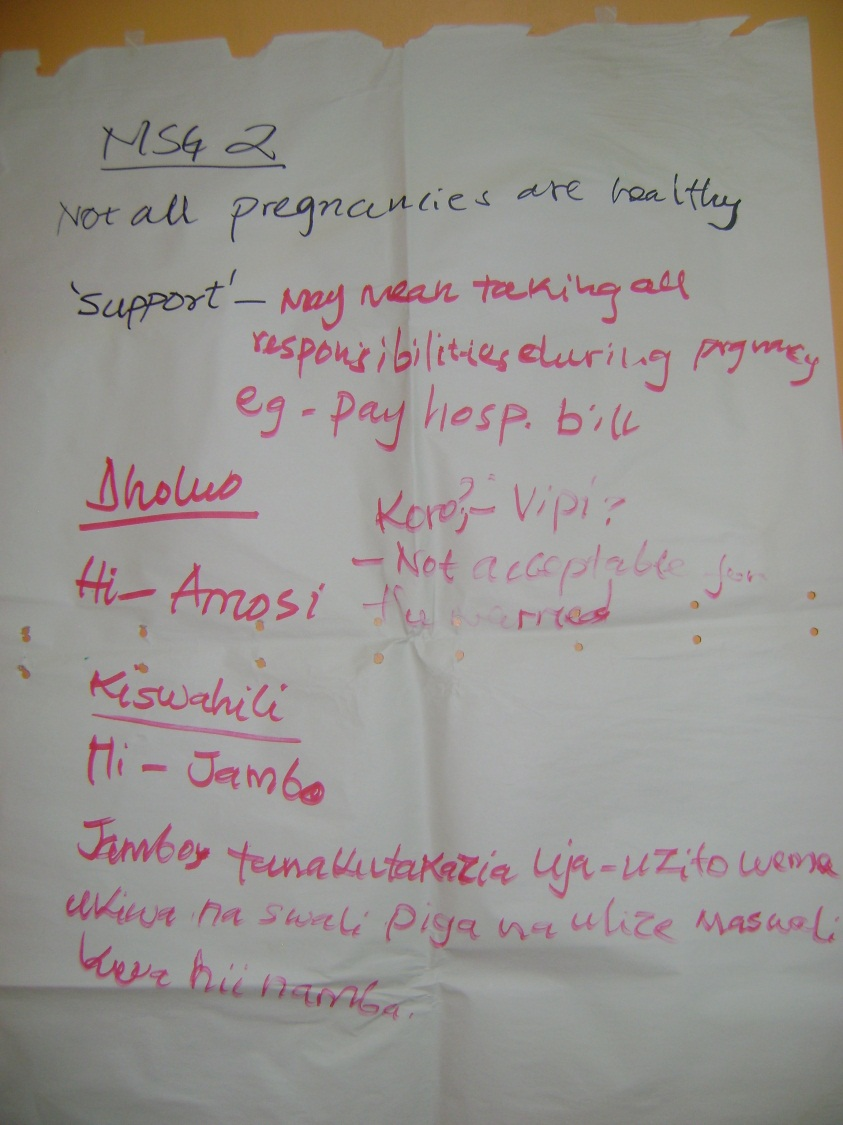 MSG 2
Not all pregnancies are healthy
'Support' - May mean taking all
responsibilities during prgnacy
eg - Pay hosp. bill
Dholuo
Koro?;- Vipi?
- Not acceptable for
the married
Hi - Amosi
Kiswahili
Hi - Jambo
Jambo, tunakutakazia Uja-uzito wema
ukiwa na swali Piga na ulize Maswali
kwa hii namba.